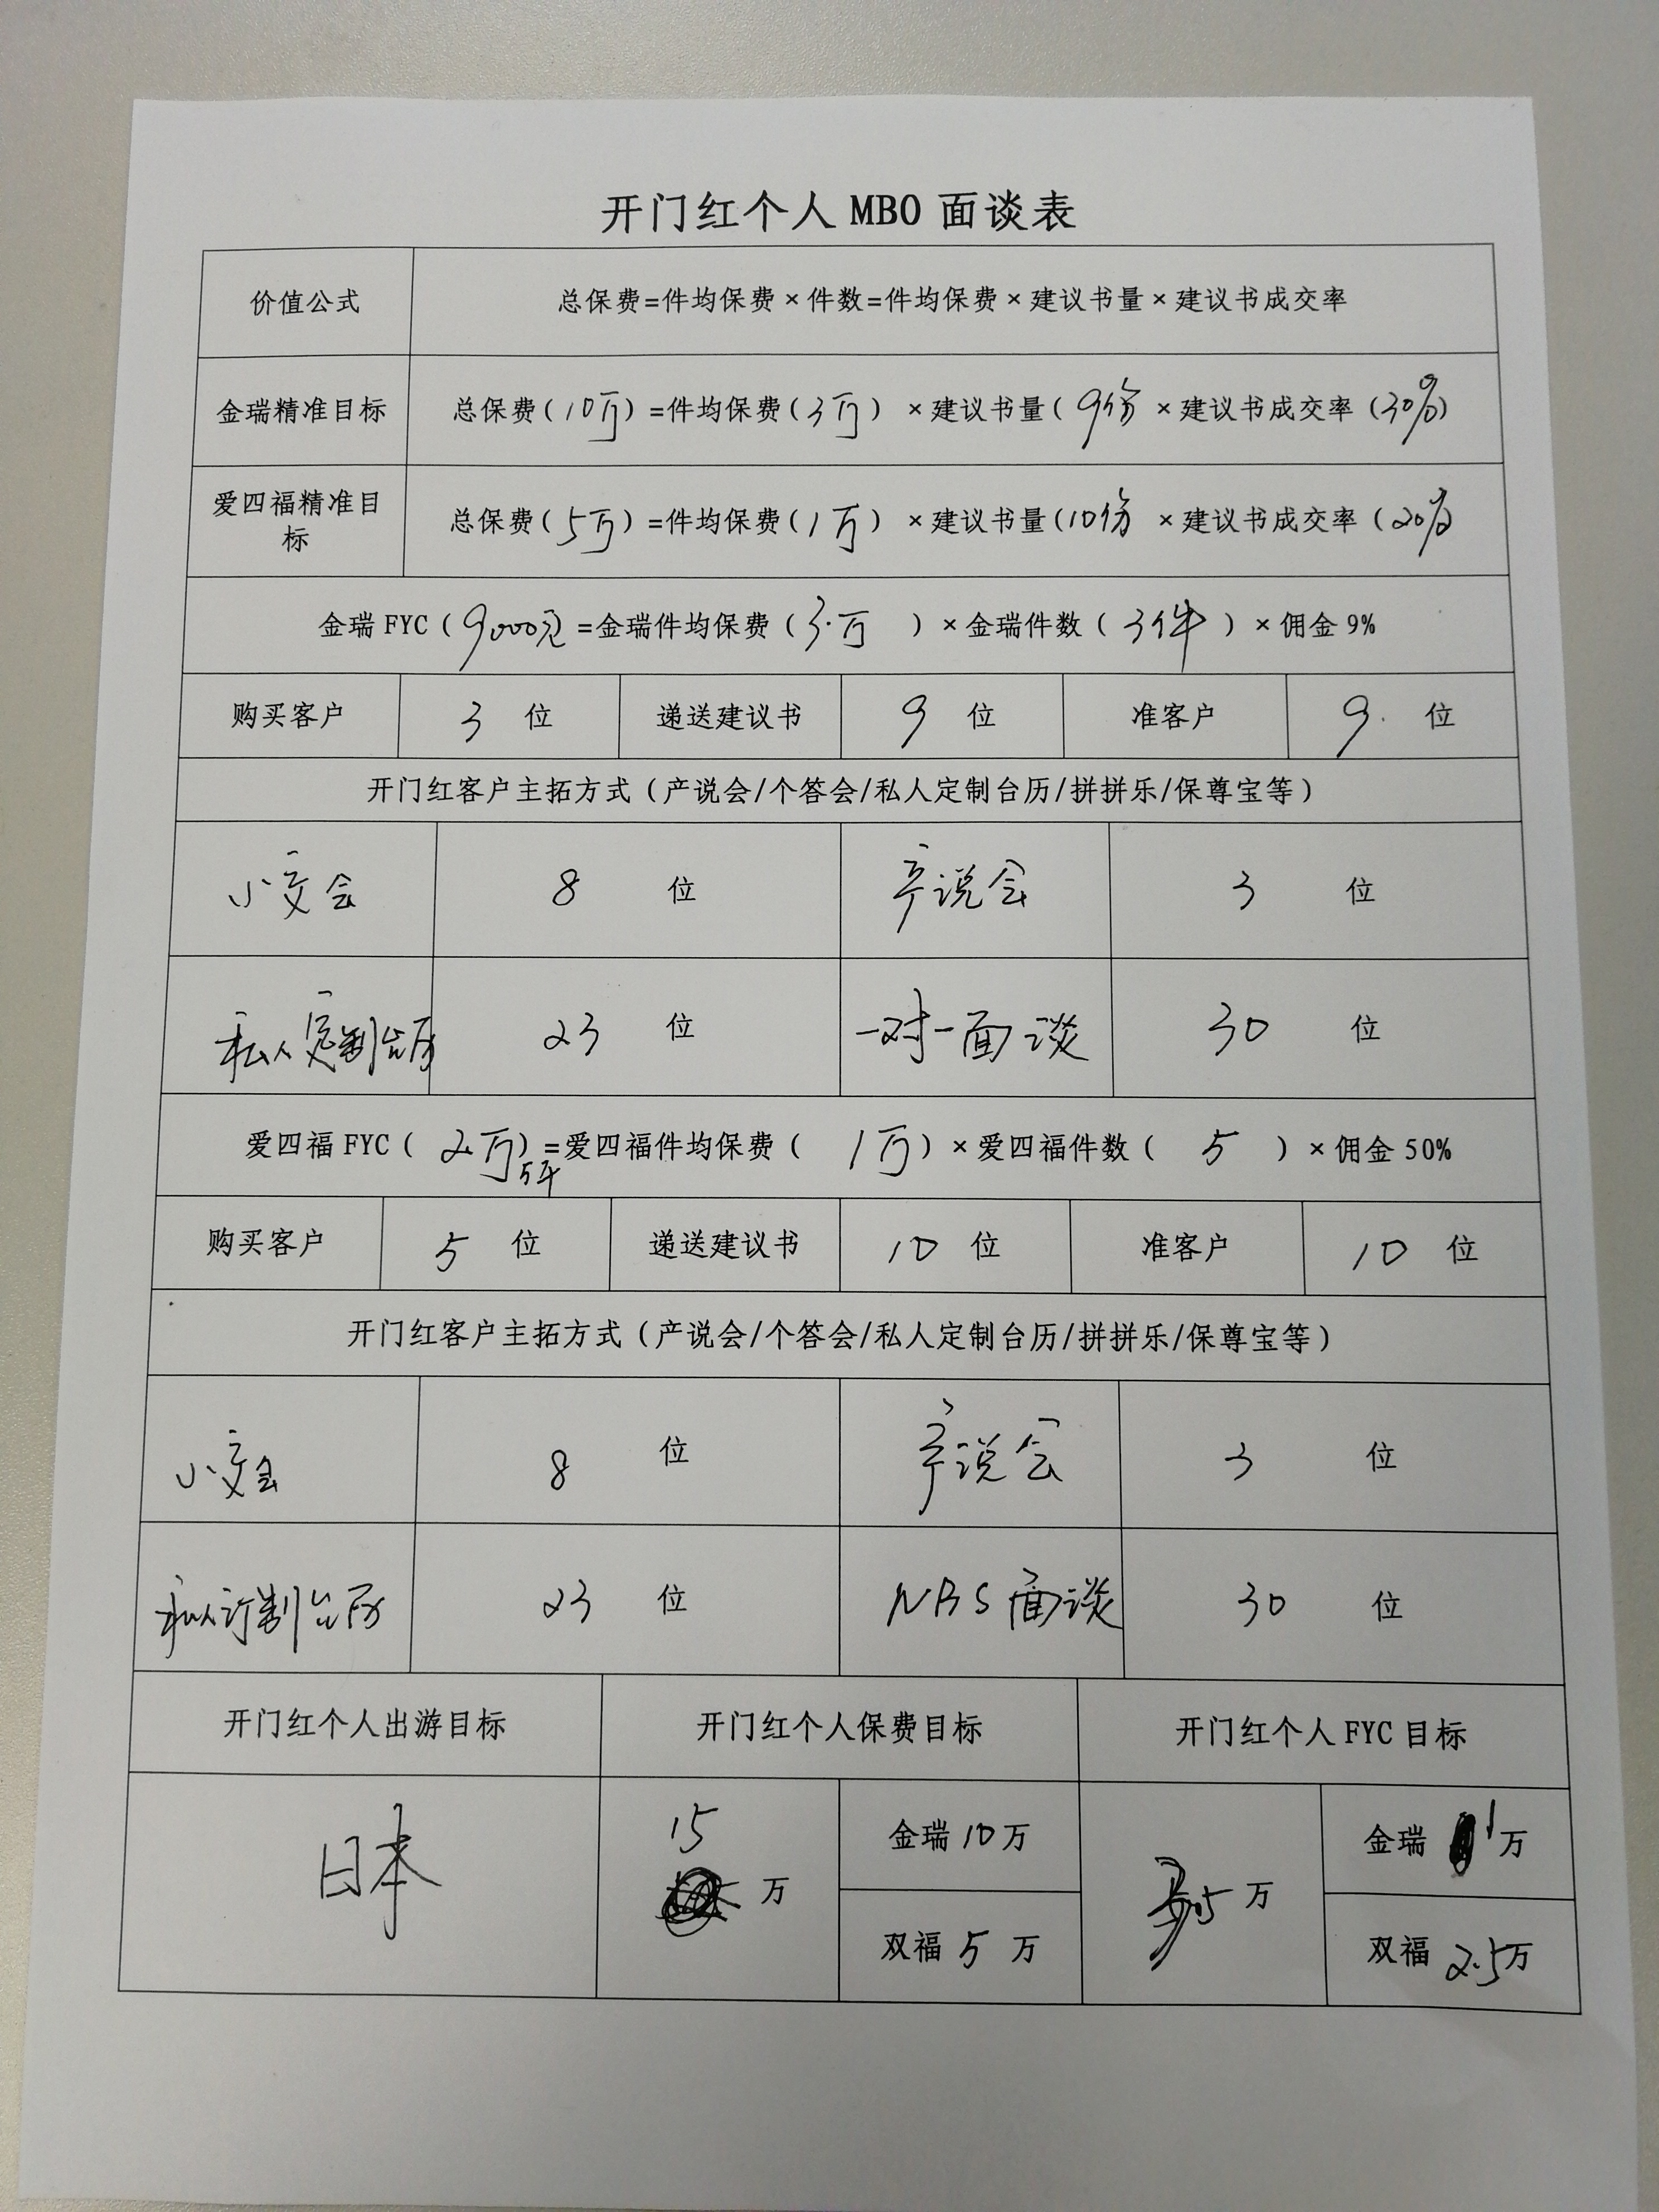 开门红个人 MBO 面谈表
价值公式 总保费=件均保费×件数=件均保费×建议书量×建议书成交率
金瑞精准目标 总保费(10万)=件均保费(3万)×建议书量(9份×建议书成交率(30%)
爱四福精准目标 总保费(5万)=件均保费(1万)×建议书量(10份×建议书成交率(20%
金瑞 FYC(9000元=金瑞件均保费(3.万)×金瑞件数(3件)×佣金 9%
购买客户 3 位 递送建议书 9 位 准客户 9. 位
开门红客户主拓方式(产说会/个答会/私人定制台历/拼拼乐/保尊宝等)
小交会 8 位 产说会 3 位
私人定制台历 23 位 一对一面谈 30 位
爱四福 FYC(2万5千)=爱四福件均保费(1万)×爱四福件数(5)×佣金 50%
购买客户 5 位 递送建议书 10 位 准客户 10 位
开门红客户主拓方式(产说会/个答会/私人定制台历/拼拼乐/保尊宝等)
小交会 8 位 产说会 3 位
私人订制台历 23 位 NBS面谈 30 位
开门红个人出游目标 开门红个人保费目标 开门红个人 FYC 目标
日本 15 万 金瑞 10 万 万 金瑞 1 万
双福 5 万 双福 2.5 万